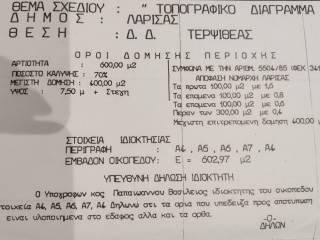 ΘΕΜΑ ΣΧΕΔΙΟΥ : " ΤΟΠΟΓΡΑΦΙΚΟ ΔΙΑΓΡΑΜΜΑ
ΔΗΜΟΣ : ΛΑΡΙΣΑΣ
ΘΕΣΗ : Δ. Δ. ΤΕΡΨΙΘΕΑΣ
ΟΡΟΙ ΔΟΜΗΣΗΣ ΠΕΡΙΟΧΗΣ
ΑΡΤΙΟΤΗΤΑ : 600,00 μ2
ΠΟΣΟΣΤΟ ΚΑΛΥΨΗΣ : 70%
ΜΕΓΙΣΤΗ ΔΟΜΗΣΗ : 400,00 μ2
ΥΨΟΣ : 7,50 μ + Στεγη
ΣΥΜΦΩΝΑ ΜΕ ΤΗΝ ΑΡΙΘΜ. 5504/85 ΦΕΚ 341
ΑΠΟΦΑΣΗ ΝΟΜΑΡΧΗ ΛΑΡΙΣΑΣ
Τα πρωτα 100,00 μ2 με
Τα επομενα 100,00 μ2 με 0,8
Τα επομενα 100,00 μ2 με 0,6
Περαν των 300,00 μ2 με 0,4
Μεγιστη επιτρεπομενη δομηση 400,00
ΣΤΟΙΧΕΙΑ ΙΔΙΟΚΤΗΣΙΑΣ
ΠΕΡΙΓΡΑΦΗ : Α4 , Α5 , Α6, Α7, Α4
ΕΜΒΑΔΟΝ ΟΙΚΟΠΕΔΟΥ : Ε = 602,97 μ2
ΥΠΕΥΘΥΝΗ ΔΗΛΩΣΗ ΙΔΙΟΚΤΗΤΗ
Ο Υπογραφων κος Παπαιωαννου Βασιλειος ιδιοκτητης του οικοπεδου
τοιχεια Α4, Α5, Α6, Α7, Α4 Δηλωνω οτι τα ορια που υπεδειξα προς αποτυπωση
ειναι υλοποιημενα στο εδαφος αλλα και τα ορθα.
-Ο-
ΔΗΛΩΝ